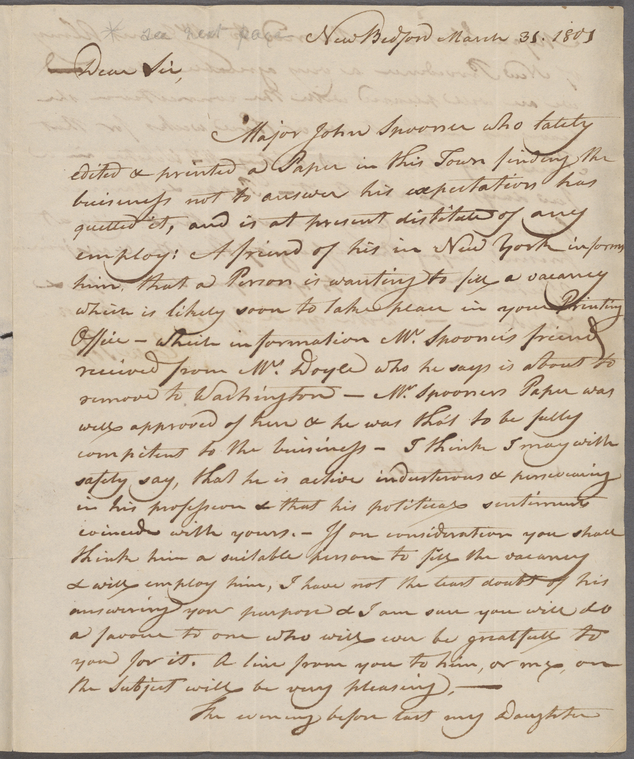 * see next page
New Bedford March 31. 1801
Dear Sir,
Major John Spooner who lately
edited & printed a Paper in this Town finding the
buisiness not to answer his expectations has
quitted it, and is at present distitute of any
employ: A friend of his in New York informs
him, that a Person is wanting to fill a vacancy
which is likely soon to take place in your Printing
Office – which information Mr. Spooners friend
received from Mr. Doyle who he says is about to
remove to Washington – Mr. Spooners Paper was
well approved of here & he was thôt to be fully
competent to the buisiness – I think I may with
safety say, that he is active industrous & persevering
in his profession & that his political sentiments
coincide with yours. – If on consideration you shall
think him a suitable person to fill the vacancy
& will employ him, I have not the least doubt of his
answering your purpose & I am sure you will do
a favour to one who will ever be greatfull to
you for it. A line from you to him, or me, on
the subject will be very pleasing, —
The evening before last my Daughter